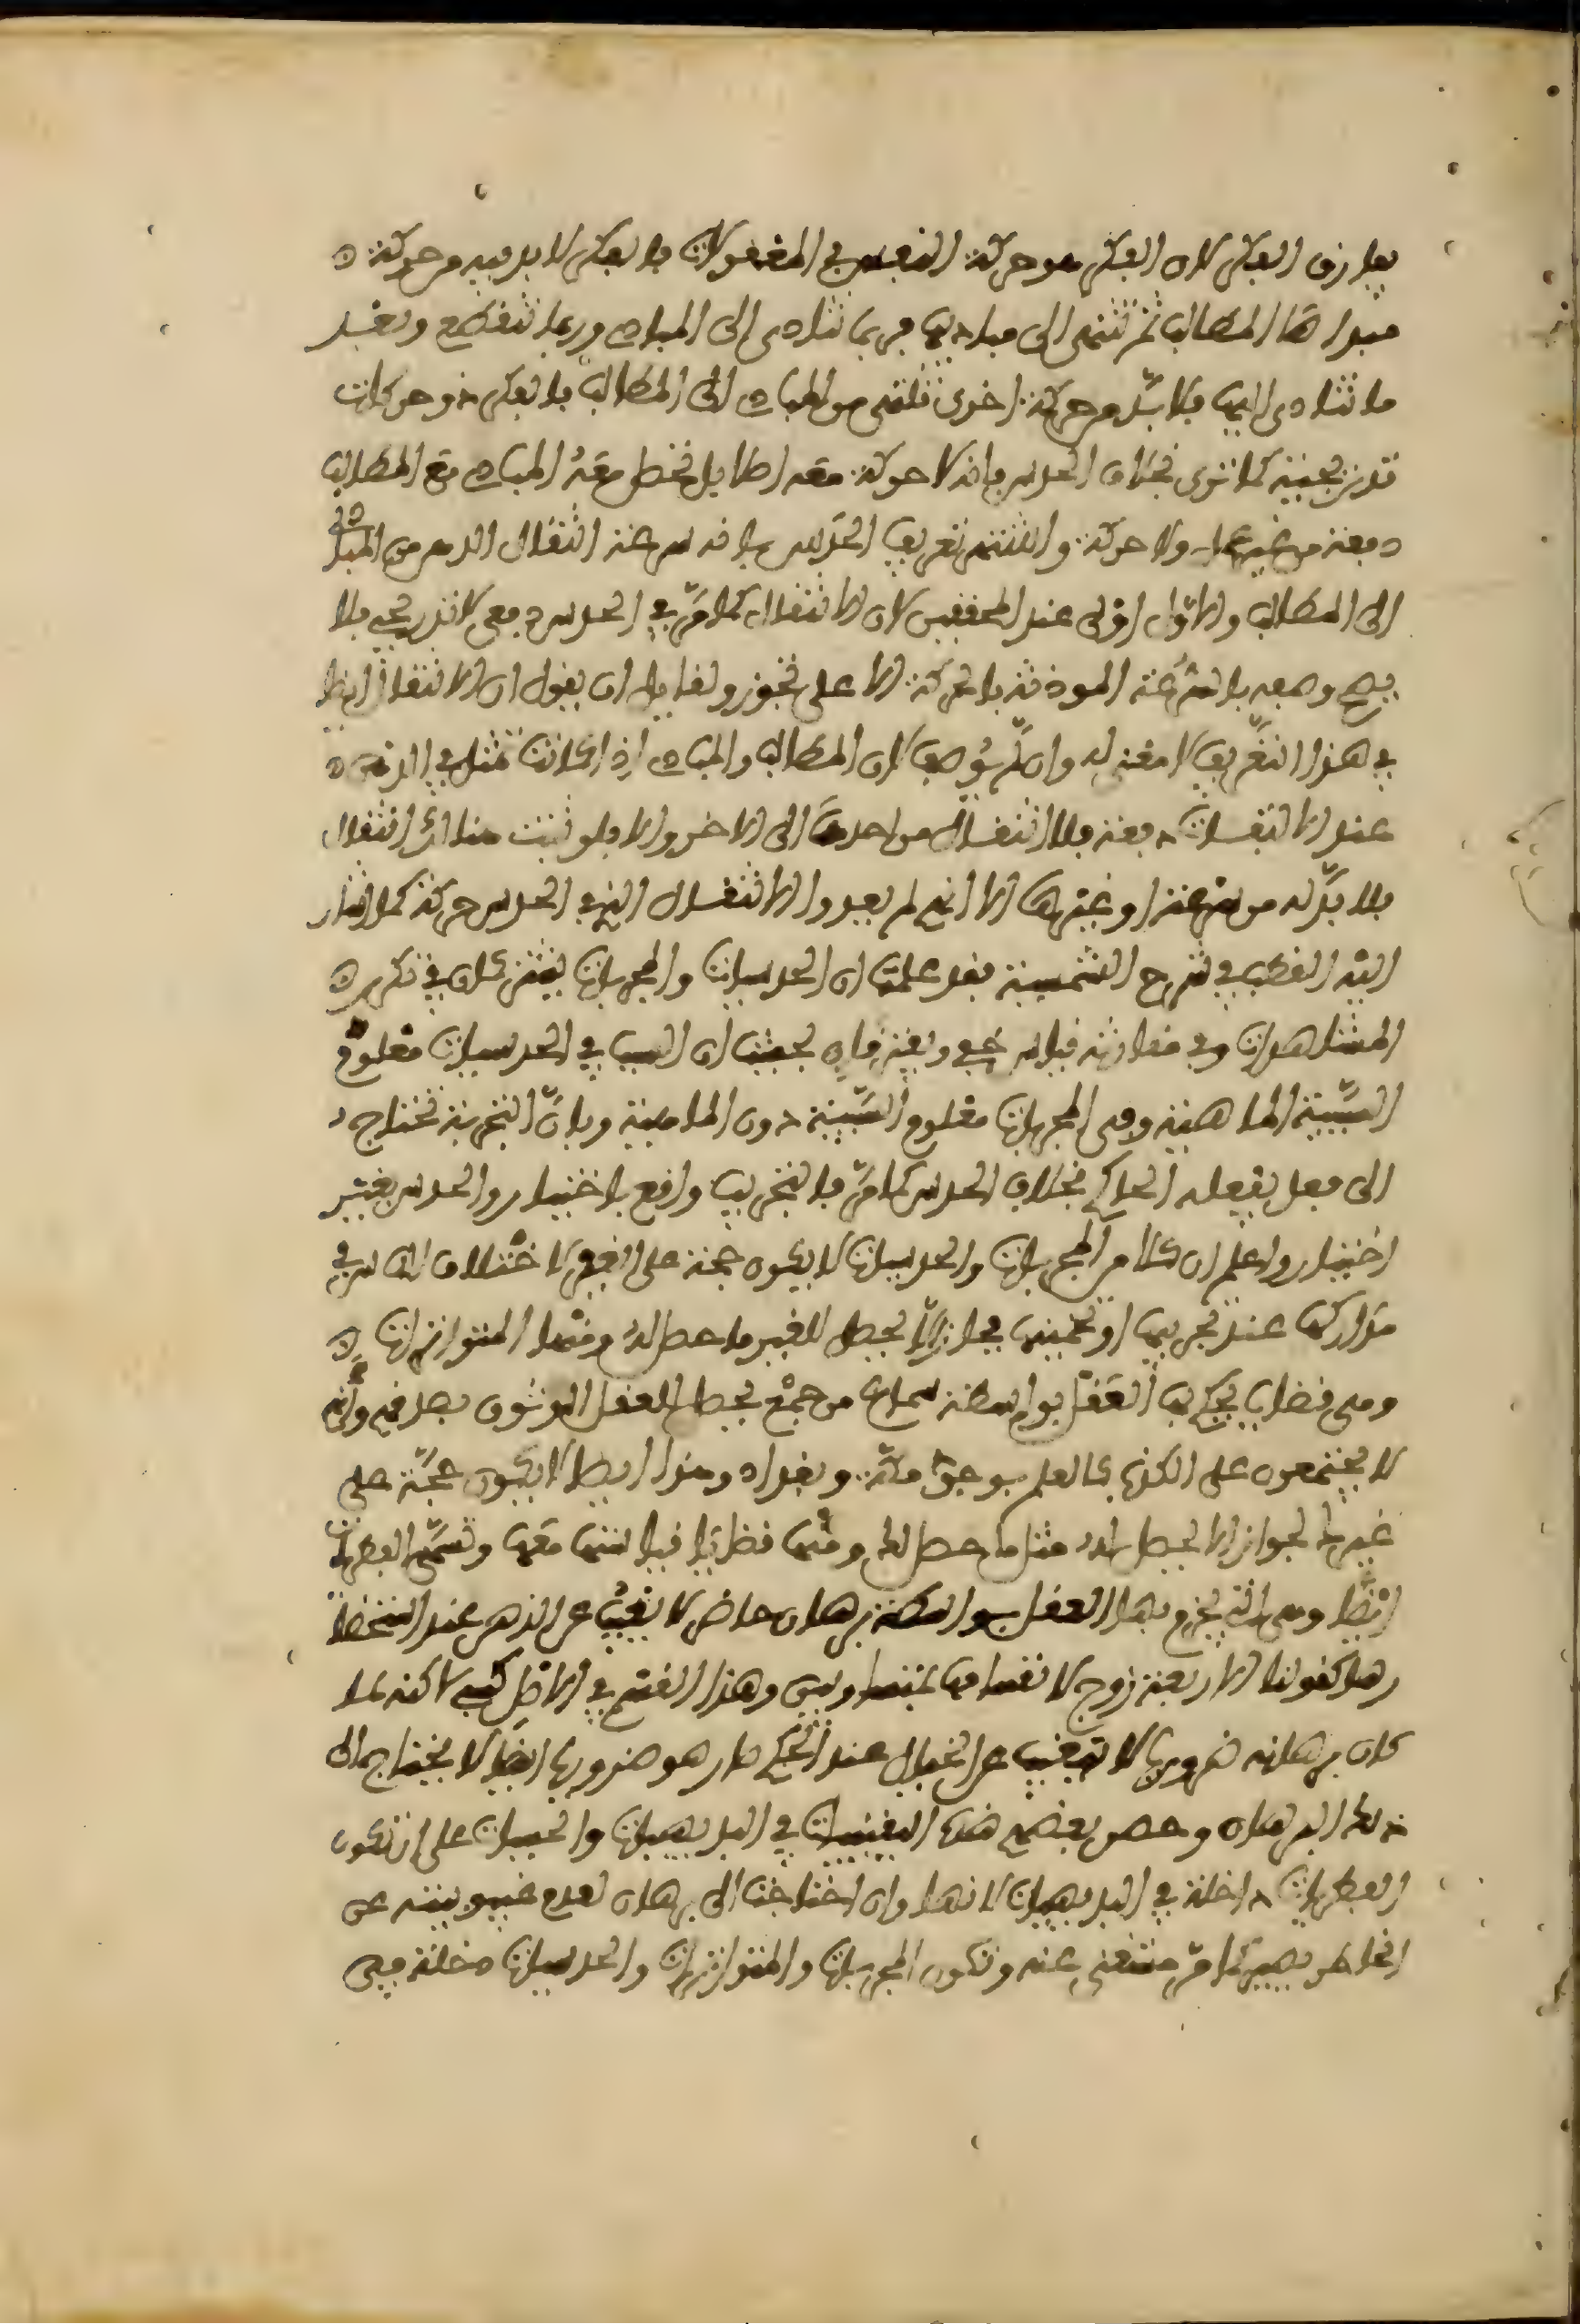 يفارق الفكر لان الفكر هو حركة النفس في المعقولات فالفكر لا بد فيه من حركة
مبداها المطالب ثم تنتهي الى مباديها فربما تتادى الى المبادي وربما تنقطع وبعد
ما تتادى اليها فلا بد من حركة اخرى تنتهي من المبادي الى المطالب فالفكر ذو حركات
تدريجية كما ترى بخلاف الحدس فانه لا حركة معه اصلا بل تحصل معه المبادي مع المطالب
دفعة من غير عمل ولا حركة واشتهر تعريف الحدس بانه سرعة انتقال الذهن من المبادي
الى المطالب والاول اولى عند المحققين لان الانتقال كما مر في الحدس دفعي لا تدريجي فلا
يصح وصفه بالسرعة الموذنة بالحركة الا على تجوز ولقايل ان يقول ان الانتقال ايضا
في هذا التعريف لا معنى له وان لم يوصف لان المطالب والمبادي اذا كانت تمثل في الذهن
عند الالتفات دفعة فلا انتقال من احدها الى الاخر والا فلو ثبت هنالك انتقال
فلا بد له من سرعة او غيرها الا انهم لم يعدوا الانتقال الذي في الحدس حركة كما اشار
اليه القطب في شرح الشمسية فقد علمت ان الحدسيات والمجربات يشتركان في تكرر
المشاهدات وفي مقارنة قياس خفي ويفترقان بحيث ان السبب في الحدسيات معلوم
السببية الماهية وفي المجربات معلوم السببية دون الماهية وبان التجربة تحتاج
الى فعل يفعله الحاكم بخلاف الحدس كما مر فالتجريب واقع باختيار والحدس بغير
اختيار واعلم ان كلا من المجربات والحدسيات لا يكون حجة على الغير لاختلاف الناس في
مداركها عند تجربتها او تخمينها فجاز الا يحصل للغير ما حصل له ومنها المتواترات
وهي قضايا يحكم بها العقل بواسطة سماع من جمع يحصل للعقل الوثوق بصدقهم وانهم
لا يجتمعون على الكذب كالعلم بوجود مكة وبغداد وهذا ايضا لا يكون حجة على
غيرها لجواز الا يحصل له مثل ما حصل لها ومنها قضايا قياساتها معها وتسمى الفطريات
ايضا وهي التي يجزم بها العقل بواسطة برهان حاضر لا يغيب عن الذهن عند استحضا
رها كقولنا الاربعة زوج لانقسامها بمتساويين وهذا القسم في الاصل كسبي لاكنه لما
كان برهانه ضروريا لا يغيب عن الخيال عند الحكم صار هو ضروريا ايضا لا يحتاج الى
ذلك البرهان وحصر بعضهم هذه اليقينيات في البديهيات والحسيات على ان تكون
الفطريات داخلة في البديهيات لانها وان احتاجت الى برهان لعدم غيبوبته عن
الخاطر يصير كما مر مستغنى عنه وتكون المجربات والمتواترات والحدسيات داخلة في